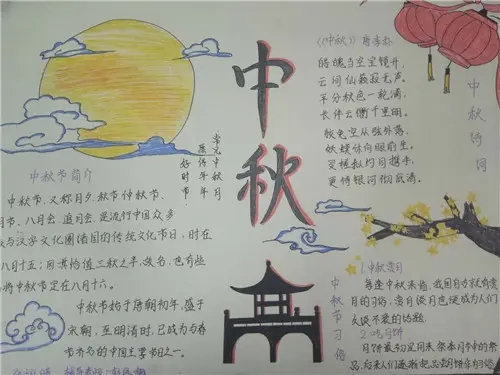 中秋
中秋节简介
中秋节，又称月夕，秋节，仲秋节，
月节、八月会、追月会、是流行中国众多
与汉字文化圈诸国的传统文化节日，时在
八月十五；因其恰值三秋之半，故名，也有些
将中秋节定在八月十六。
中秋节始于唐朝初年，盛于
宋朝，至明清时，已成为与春
节齐名的中国主要节日之一。
《中秋》 李朴
皓魄当空宝镜升，
云间仙籁寂无声。
平分秋色一轮满，
长伴云衢千里明。
狡兔空从弦外落，
妖蟆休向眼前生。
灵槎拟约同携手，
更待银河彻底清。
中秋诗词
中秋节习俗
1.中秋赏月
每逢中秋来临，我国自古就有赏
月的习俗，赏月谈月也便成为人们
久谈不衰的话题
2.吃月饼
月饼最初是用来祭奉月神的祭
品，后来人们逐渐把品尝月饼作